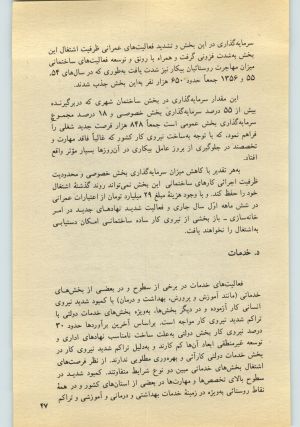 سرمایه‌گذاری در این بخش و تشدید فعالیت‌های عمرانی ظرفیت اشتغال این
بخش به‌شدت فزونی گرفت و همراه با رونق و توسعه فعالیت‌های ساختمانی
میزان مهاجرت روستائیان بیکار نیز شدت یافت به‌طوری که در سال‌های ۵۴،
۵۵ و ۱۳۵۶ جمعاً حدود ۶۵۰ هزار نفر به‌این بخش جذب شدند.
این مقدار سرمایه‌گذاری در بخش ساختمان شهری که دربرگیرنده
بیش از ۵۵ درصد سرمایه‌گذاری بخش خصوصی و ۱۸ درصد مجموع
سرمایه‌گذاری بخش عمومی است جمعاً ۸۴۸ هزار فرصت جدید شغلی را
فراهم نمود، که با توجه به‌ساخت نیروی کار کشور که غالباً فاقد مهارت و
تخصصند در جلوگیری از بروز عامل بیکاری در آن‌روزها بسیار مؤثر واقع
افتاد.
به‌هر تقدیر با کاهش میزان سرمایه‌گذاری بخش خصوصی و محدودیت
ظرفیت اجرائی کارهای ساختمانی این بخش نمی‌تواند روند گذشتهٔ اشتغال
خود را حفظ کند. و با وجود هزینهٔ مبلغ ۲۹ میلیارد تومان از اعتبارات عمرانی
در شش ماهه اول سال جاری و فعالیت شدید نهادهای جدید در امر
خانه‌سازی ـ باز بخشی از نیروی کار ساده ساختمانی امکان دستیابی
به‌اشتغال را نخواهند یافت.
د. خدمات
فعالیت‌های خدمات در برخی از سطوح و در بعضی از بخش‌های
خدماتی (مانند آموزش و پرورش، بهداشت و درمان) با کمبود شدید نیروی
انسانی کار آزموده و در دیگر بخش‌ها، به‌ویژه بخش‌های خدمات دولتی با
تراکم شدید نیروی کار مواجه است. براساس آخرین برآوردها حدود ۳۰
درصد نیروی کار بخش دولتی به‌علت ساخت نامناسب نهادهای اداری و
توسعه غیرمنطقی ابعاد آن‌ها کم کارند و به‌دلیل تراکم شدید نیروی کار در
بخش خدمات دولتی کارآئی و بهره‌وری مطلوبی ندارند. از نظر فرصت‌های
اشتغال بخش‌های خدماتی مبین دو نوع شرایط متفاوتند. کمبود شدید در
سطوح بالای تخصص‌ها و مهارت‌ها در بعضی از استان‌های کشور و در همهٔ
نقاط روستائی به‌ویژه در زمینهٔ خدمات بهداشتی و درمانی و آموزشی و تراکم
۴۷